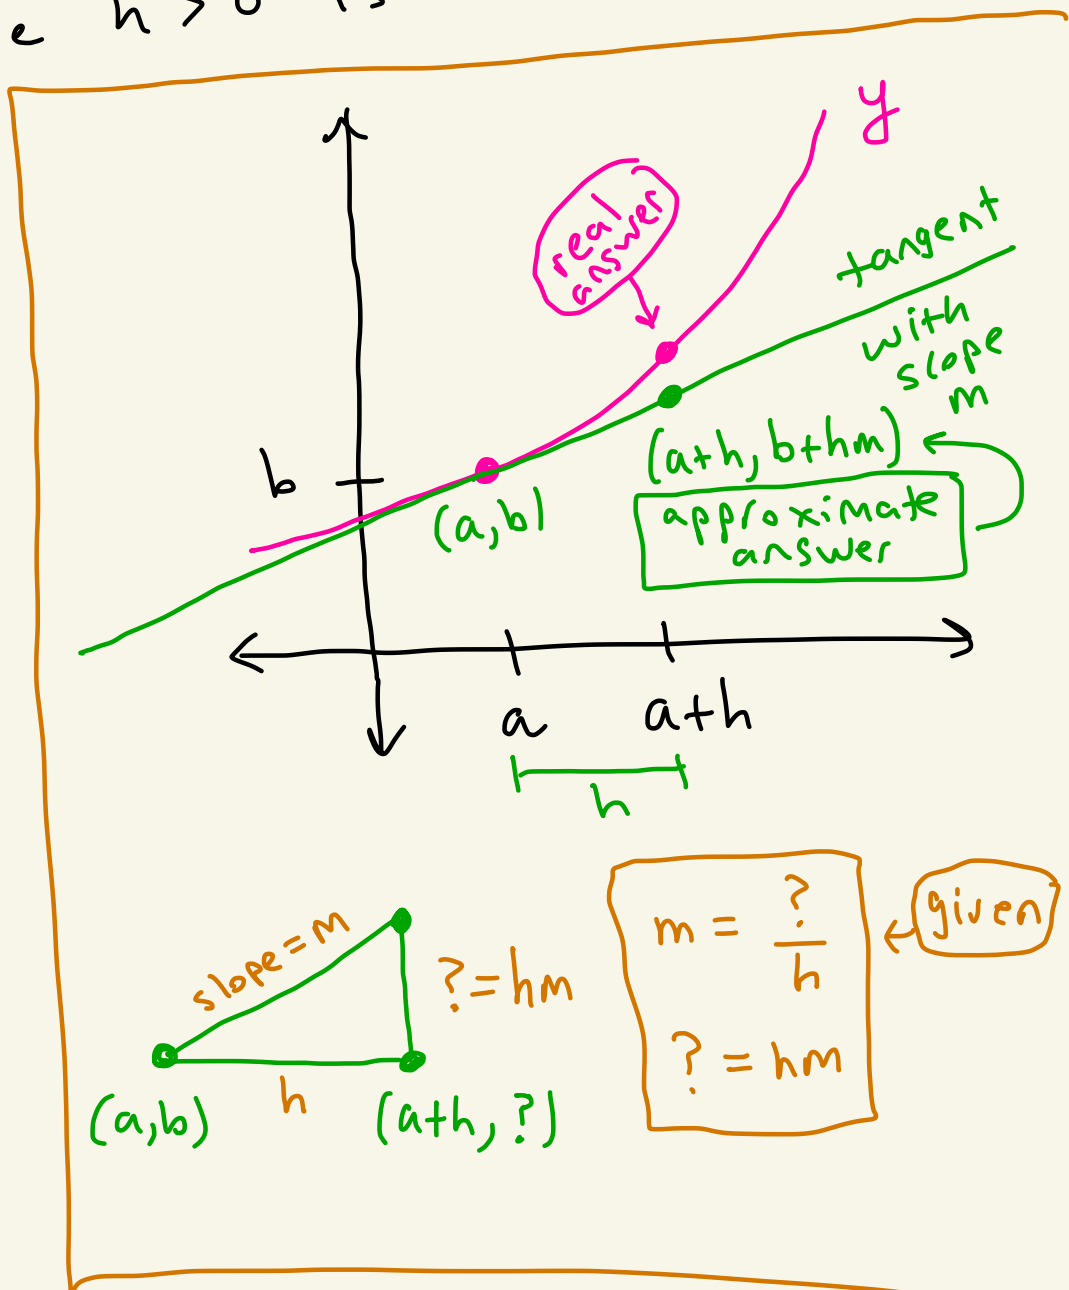 e h > 0 is
y
real
answer
tangent
with
slope
m
b
(a,b)
(a+h, b+hm)
approximate
answer
a
a+h
h
slope = m
? = hm
(a,b)
h
(a+h, ?)
m = ?/h
given
? = hm